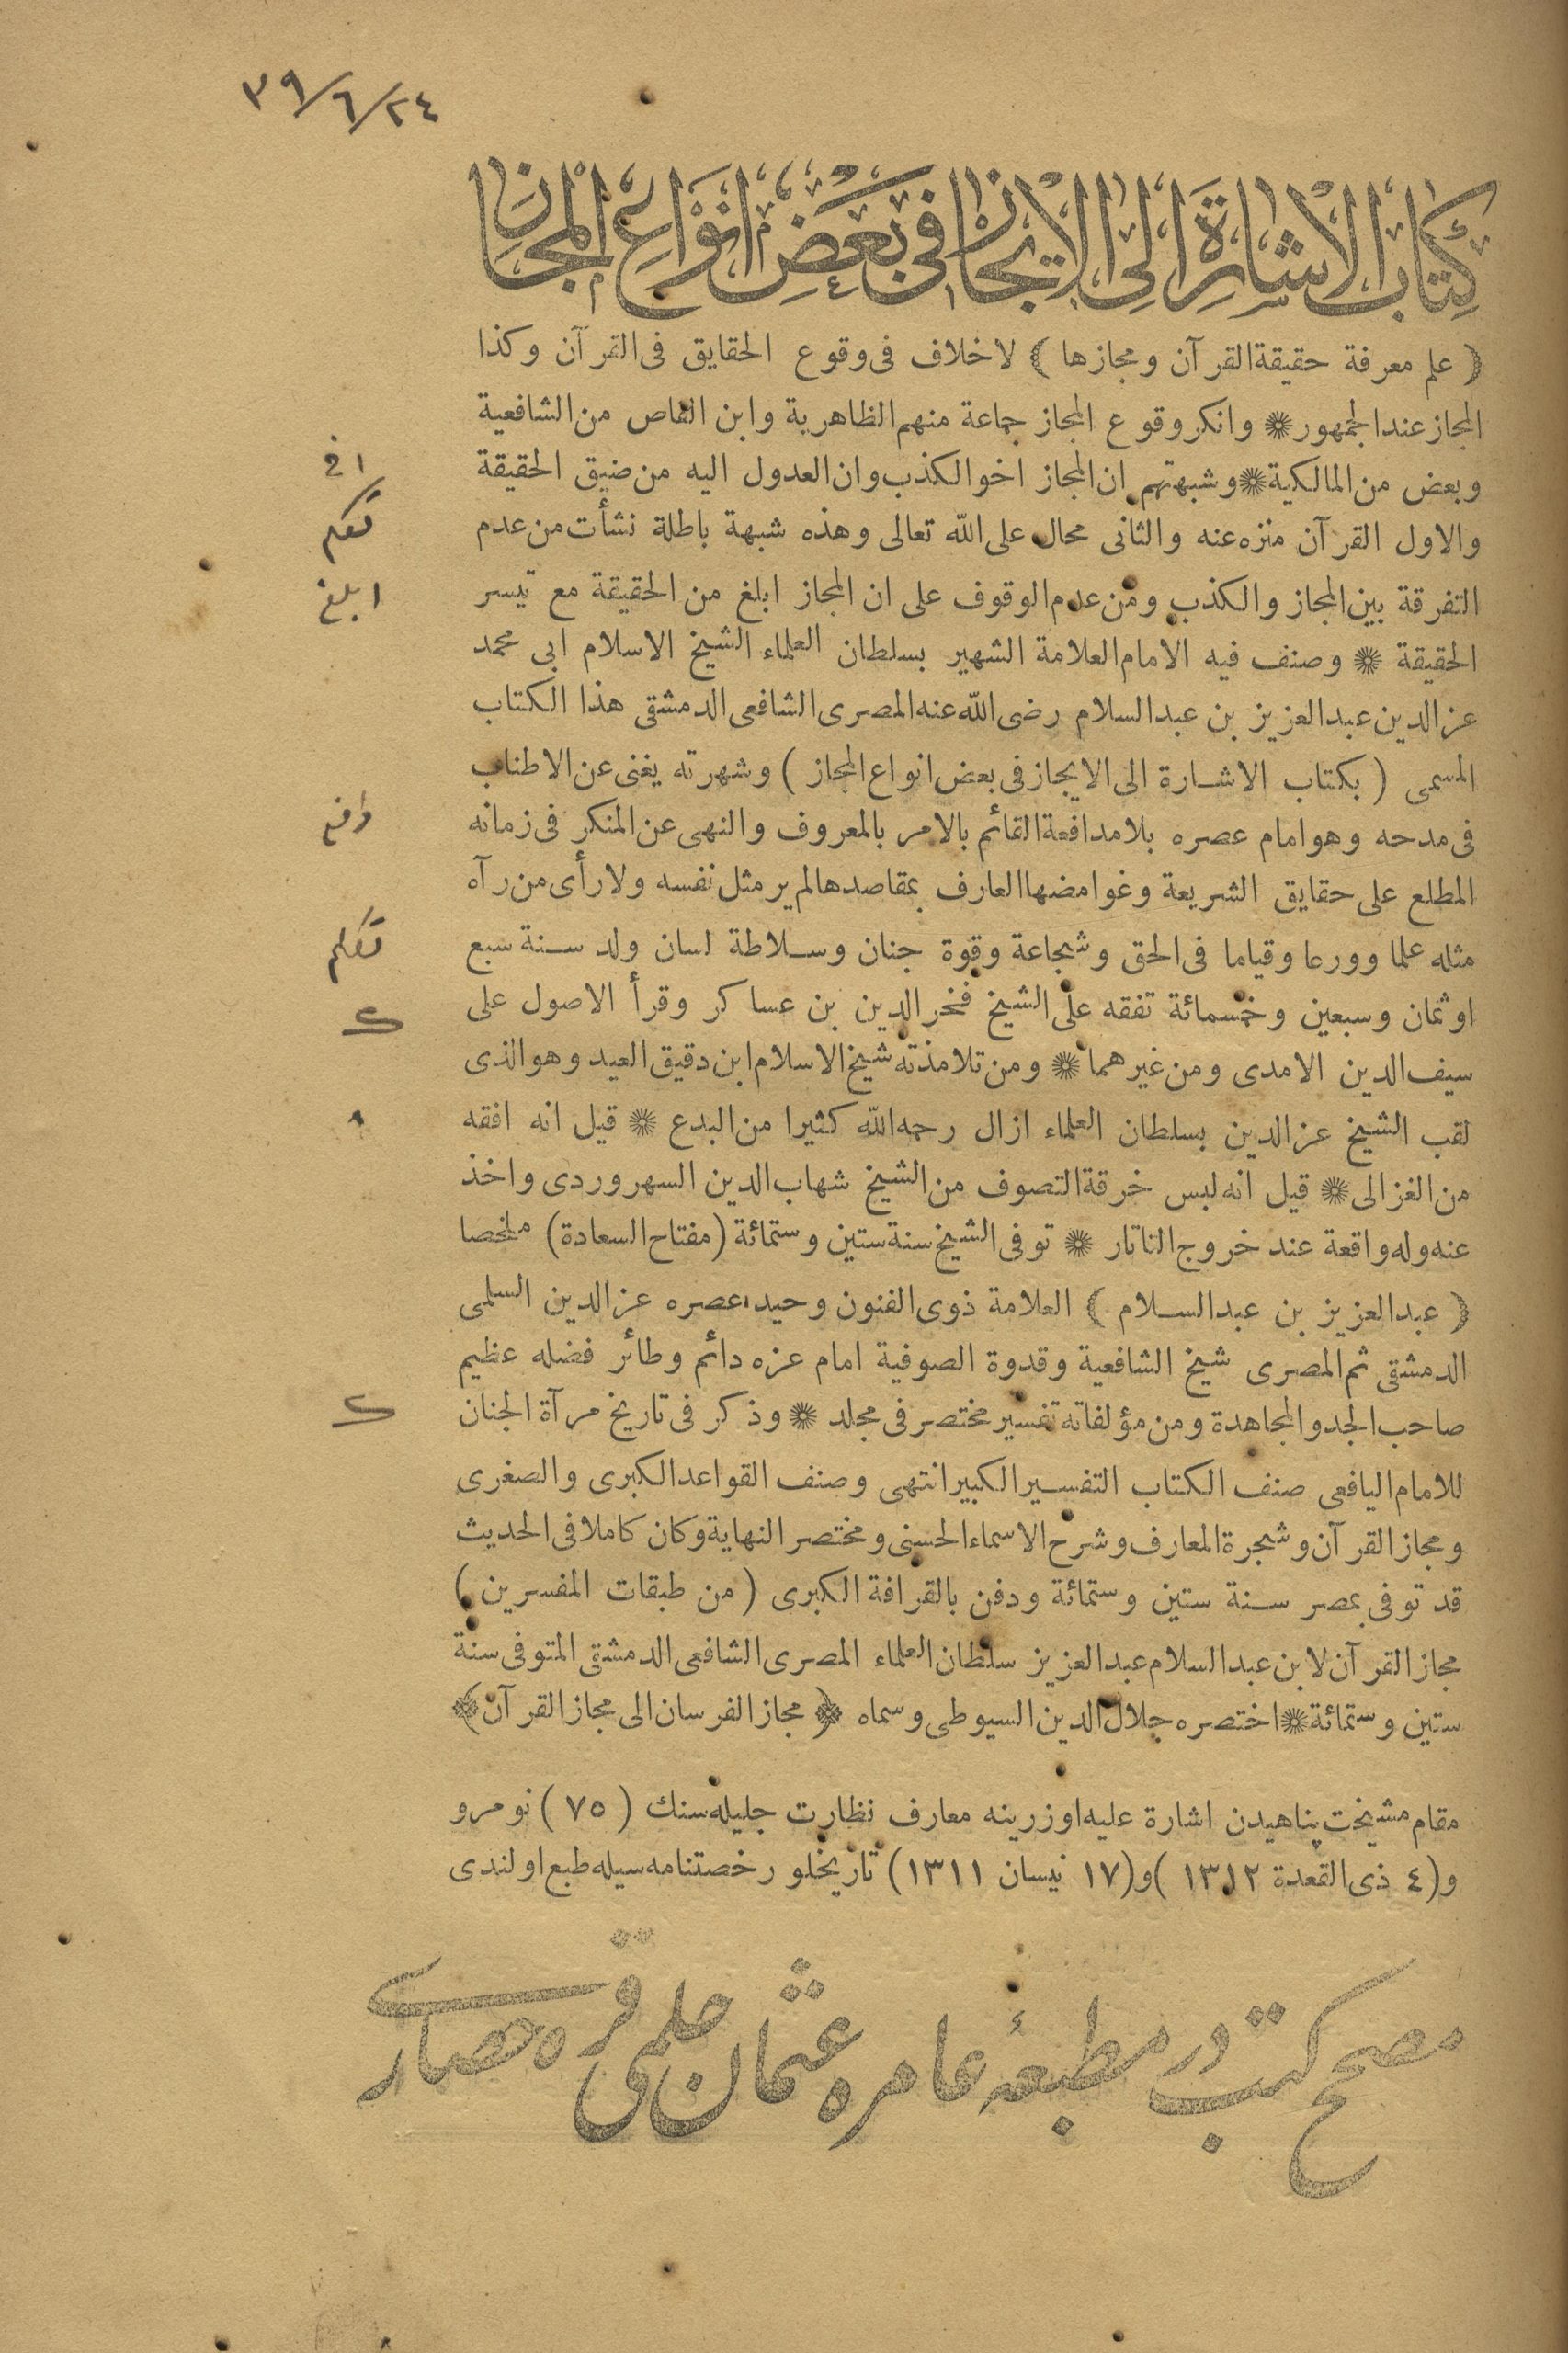 ٣٩/٦/٢٤
كتاب الاشارة الى الايجاز فى بعض انواع المجاز
﴿ علم معرفة حقيقة القرآن ومجازها ﴾ لاخلاف فى وقوع الحقايق فى القرآن وكذا
المجاز عند الجمهور * وانكر وقوع المجاز جماعة منهم الظاهرية وابن القاص من الشافعية
وبعض من المالكية * وشبهتهم ان المجاز اخو الكذب وان العدول اليه من ضيق الحقيقة
والاول القرآن منزه عنه والثانى محال على الله تعالى وهذه شبهة باطلة نشأت من عدم
التفرقة بين المجاز والكذب ومن عدم الوقوف على ان المجاز ابلغ من الحقيقة مع تيسر
ابلغ
الحقيقة * وصنف فيه الامام العلامة الشهير بسلطان العلماء الشيخ الاسلام ابى محمد
عز الدين عبد العزيز بن عبد السلام رضى الله عنه المصرى الشافعى الدمشقى هذا الكتاب
المسمى ( بكتاب الاشارة الى الايجاز فى بعض انواع المجاز ) وشهرته يغنى عن الاطناب
فى مدحه وهو امام عصره بلا مدافعة القائم بالامر بالمعروف والنهى عن المنكر فى زمانه
المطلع على حقايق الشريعة وغوامضها العارف بمقاصدها لم ير مثل نفسه ولا رأى من رآه
مثله علما وورعا وقياما فى الحق وشجاعة وقوة جنان وسلاطة لسان ولد سنة سبع
او ثمان وسبعين وخمسمائة تفقه على الشيخ فخر الدين بن عساكر وقرأ الاصول على
سيف الدين الامدى ومن غيرهما * ومن تلامذته شيخ الاسلام ابن دقيق العيد وهو الذى
لقب الشيخ عز الدين بسلطان العلماء ازال رحمه الله كثيرا من البدع * قيل انه افقه
من الغزالى * قيل انه لبس خرقة التصوف من الشيخ شهاب الدين السهروردى واخذ
عنه وله واقعة عند خروج التاتار * توفى الشيخ سنة ستين وستمائة (مفتاح السعادة) ملخصا
﴿ عبد العزيز بن عبد السلام ﴾ العلامة ذوى الفنون وحيد عصره عز الدين السلمى
الدمشقى ثم المصرى شيخ الشافعية وقدوة الصوفية امام عزه دائم وطائر فضله عظيم
صاحب الجد والمجاهدة ومن مؤلفاته تفسير مختصر فى مجلد * وذكر فى تاريخ مرآة الجنان
للامام اليافعى صنف الكتاب التفسير الكبير انتهى وصنف القواعد الكبرى والصغرى
ومجاز القرآن وشجرة المعارف وشرح الاسماء الحسنى ومختصر النهاية وكان كاملا فى الحديث
قد توفى بمصر سنة ستين وستمائة ودفن بالقرافة الكبرى ( من طبقات المفسرين )
مجاز القرآن لابن عبد السلام عبد العزيز سلطان العلماء المصرى الشافعى الدمشقى المتوفى سنة
ستين وستمائة * اختصره جلال الدين السيوطى وسماه ﴿ مجاز الفرسان الى مجاز القرآن ﴾
مقام مشيختپناهيدن اشارة عليه اوزرينه معارف نظارت جليله سنك ( ٧٥ ) نومرو
و( ٤ ذى القعدة ١٣١٢ ) و( ١٧ نيسان ١٣١١ ) تاريخلو رخصتنامه سيله طبع اولندى
مصحح كتب در مطبعهٔ عامره عثمان حلمى قره حصارى